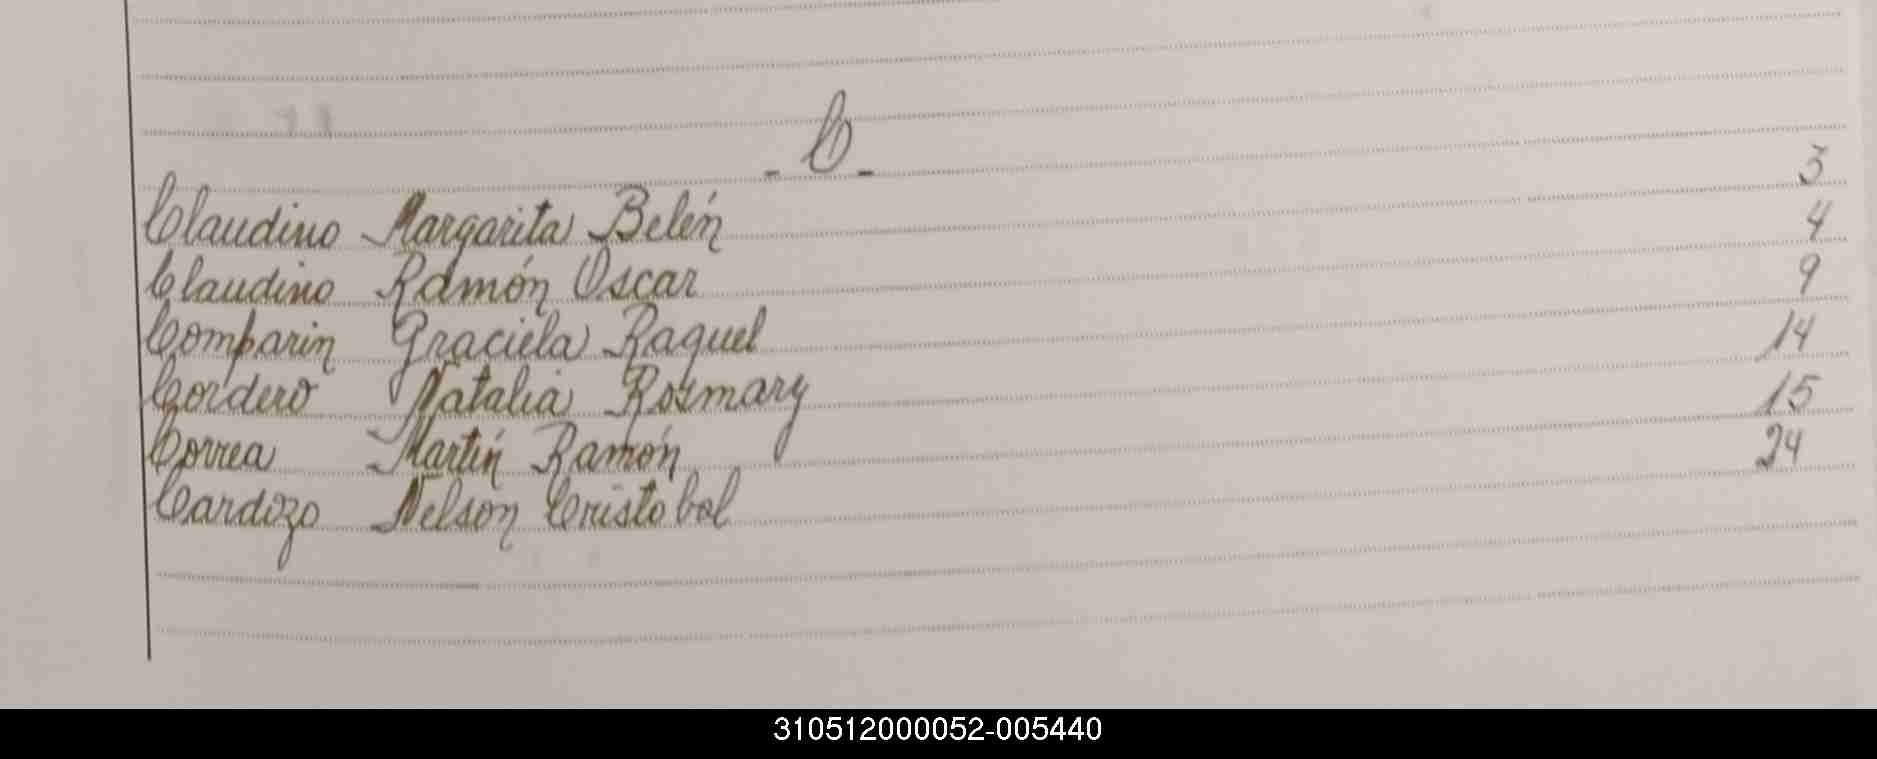 - C -
Claudino Margarita Belén 3
Claudino Ramón Oscar 4
Comparin Graciela Raquel 9
Cordero Natalia Rosmary 14
Correa Martín Ramón 15
Cardozo Nelson Cristobal 24
310512000052-005440